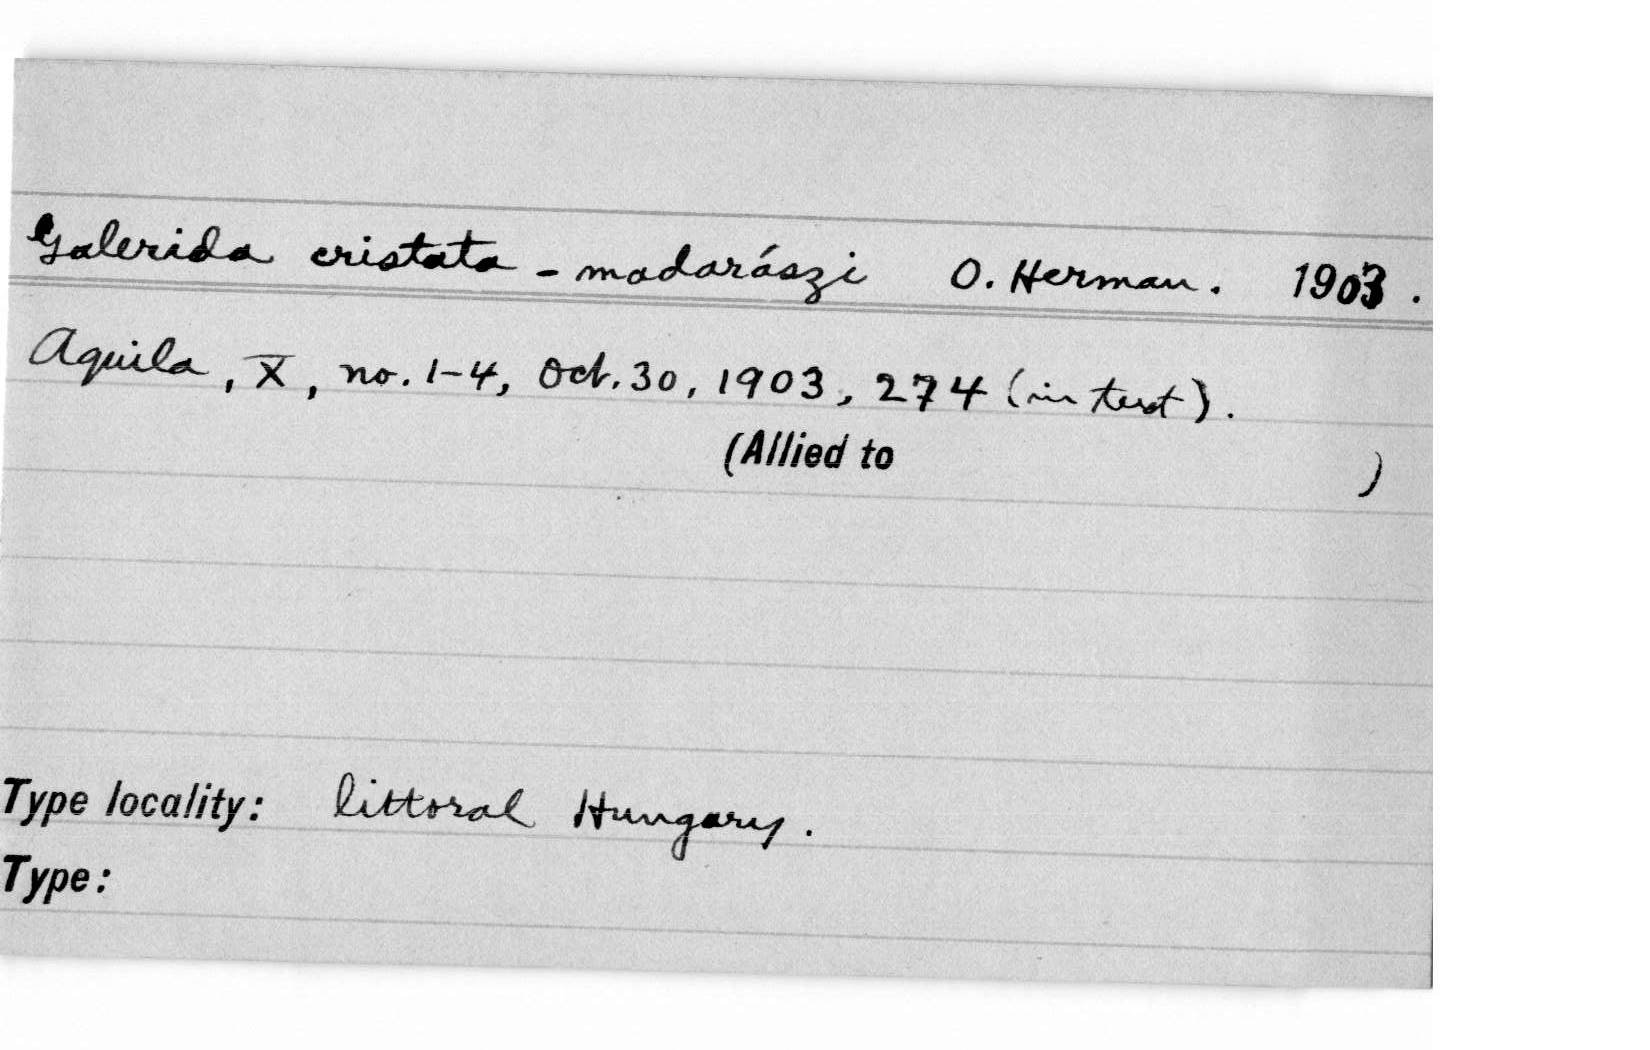 Galerida cristata - madarászi O. Herman. 1903.
Aquila, X, no. 1-4, Oct. 30, 1903, 274 (in text).
(Allied to )
Type locality: littoral Hungary.
Type: